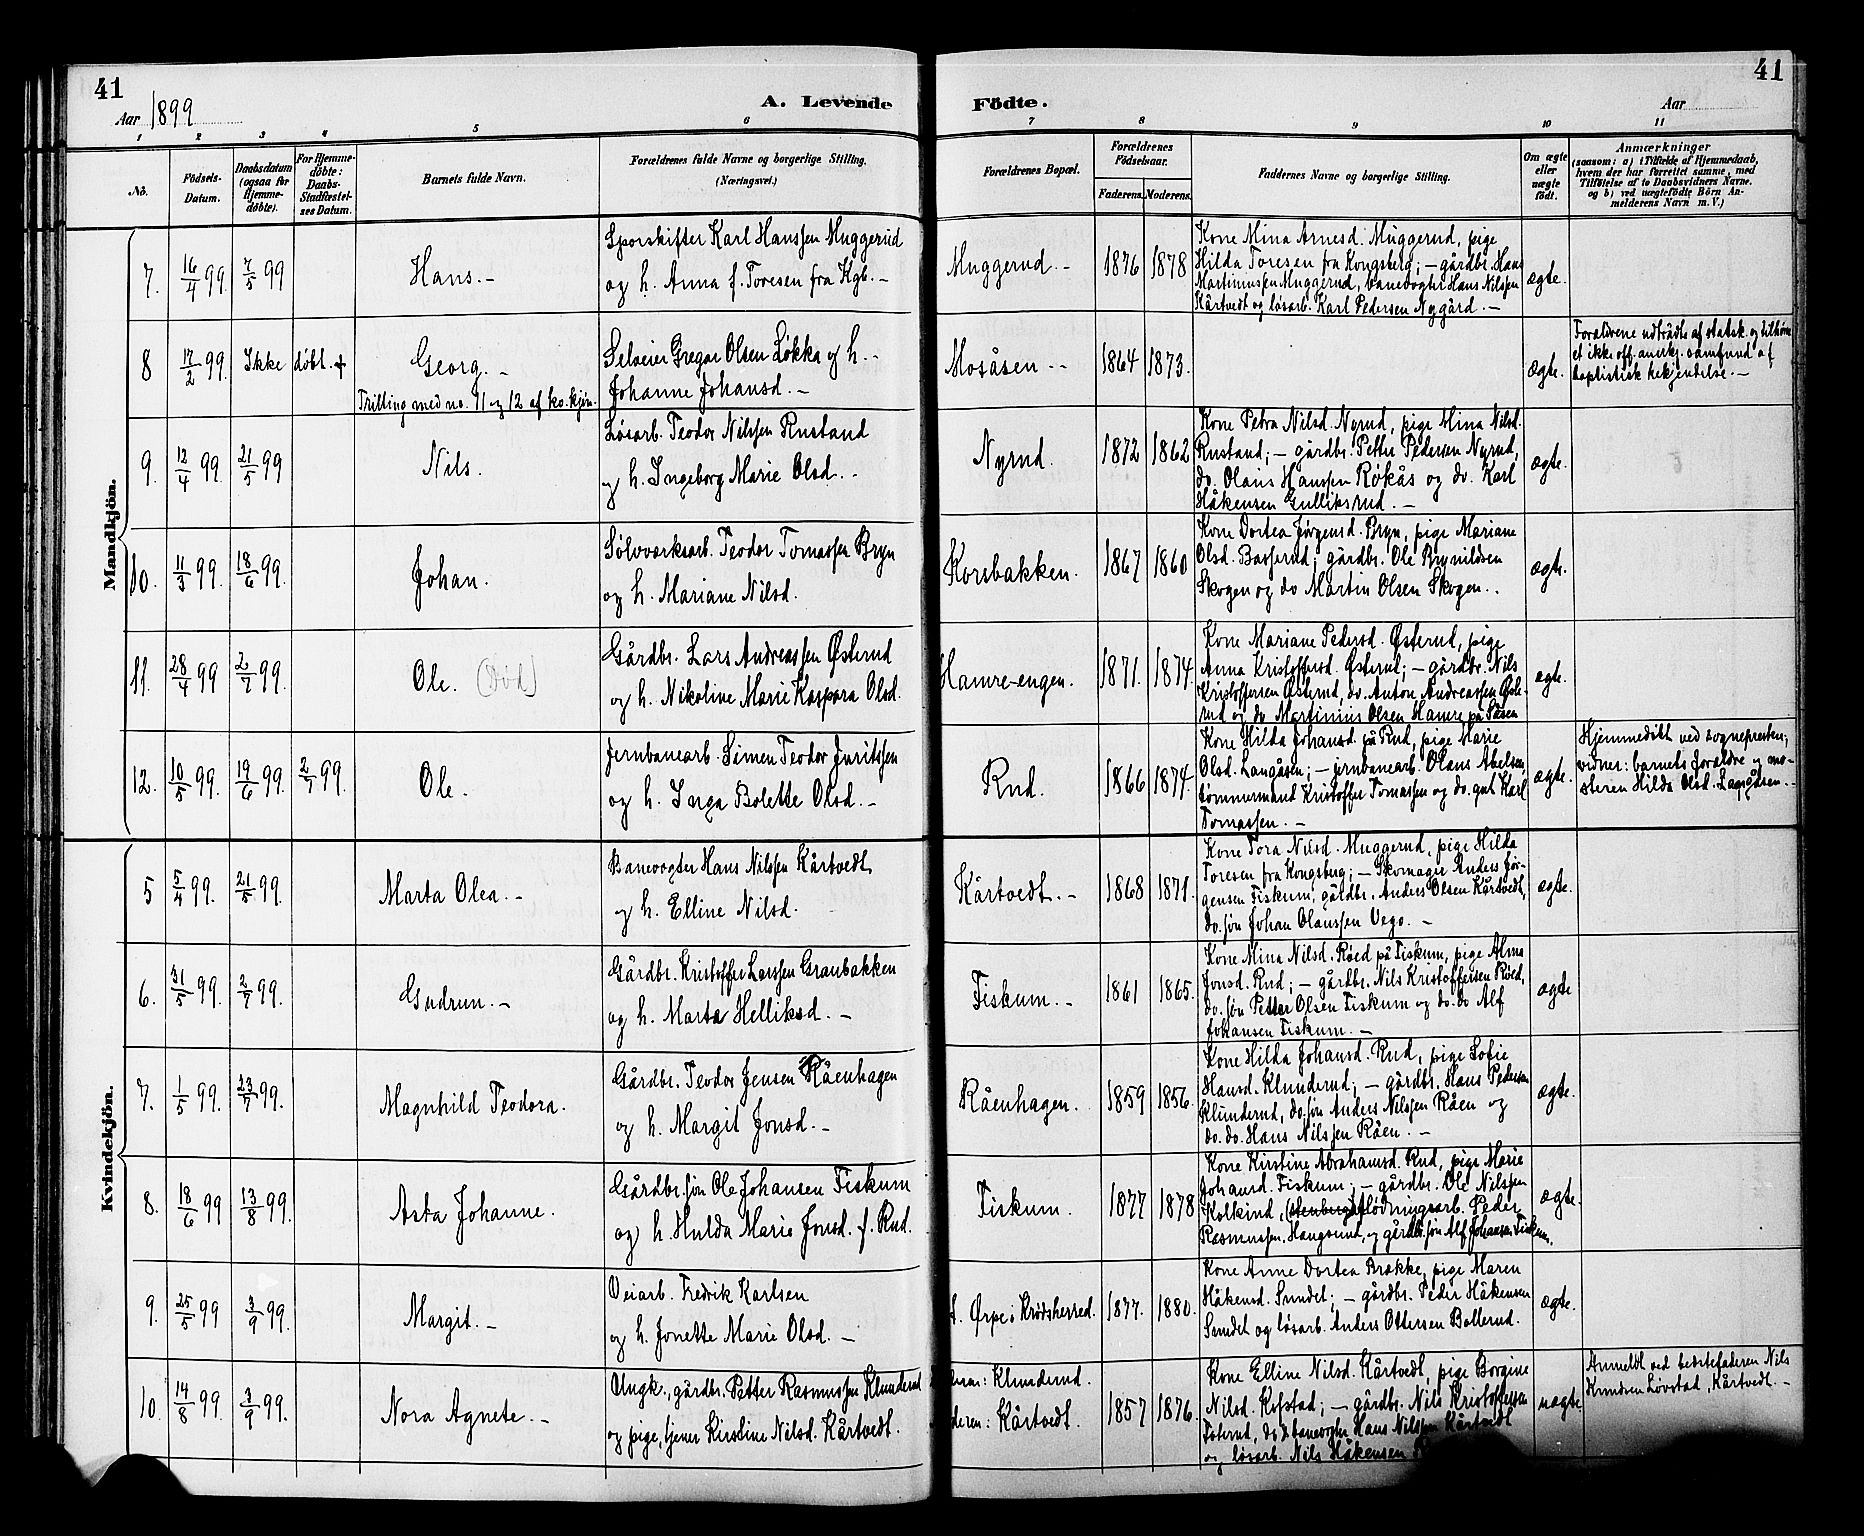 41
41
Aar 1899
A. Levende Födte.
Aar
1 2 3 4 5 6 7 8 9 10 11
No.
Födsels-Datum.
Daabsdatum (ogsaa for Hjemme-döbte).
For Hjemme-döbte: Daabs-Stadfæstel-ses Datum.
Barnets fulde Navn.
Forældrenes fulde Navne og borgerlige Stilling. (Næringsvei.)
Forældrenes Bopæl.
Forældrenes Födselsaar.
Faderens. Moderens.
Faddernes Navne og borgerlige Stilling.
Om ægte eller uægte födt.
Anmærkninger
(saasom: a) i Tilfælde af Hjemmedaab, hvem der har forrettet samme, med Tilföielse af to Daabsvidners Navne, og b) ved uægtefödte Börn Anmelderens Navn m. V.)
Mandkjön.
7. 16/4 99. 7/5 99
Hans. -
Sporskifter Karl Hanssen Muggerud
og h. Anna f. Toresen fra Kgb. -
Muggerud. -
1876 1878
Kone Mina Arnesd. Muggerud, pige
Hilda Toresen fra Kongsberg; - gårdbr. Hans
Martinussen Muggerud, banevogter Hans Nilssen
Kårtvedt og løsarb. Karl Pedersen Nygård. -
ægte.
8 17/2 99. Ikke døbt. +
Georg. -
Trilling med no. 11 og 12 af ko. kjøn.
Selveier Gregar Olsen Løkka og h. -
Johanne Johansd. -
Mosåsen. -
1864 1873.
ægte.
Forældrene udtrådte af statsk. og tilhøre
et ikke off. anerkj. samfund af
baptistisk bekjendelse. -
9. 12/4 99. 21/5 99
Nils.
Løsarb. Teodor Nilssen Rustand
og h. Ingeborg Marie Olsd. -
Nyrud.
1872 1862
Kone Petra Nilsd. Nyrud, pige Mina Nilsd.
Rustand; - gårdbr. Petter Pedersen Nyrud,
do. Olaus Hanssen Røkås og do. Karl
Håkensen Gulliksrud. -
ægte.
10. 11/3 99. 18/6 99.
Johan.
Sølvværksarb. Teodor Tomassen Bryn
og h. Mariane Nilsd.
Korsbakken.
1867 1860
Kone Dortea Jørgensd. Bryn, pige Mariane
Olsd. Basserud; gårdbr. Ole Brynildsen
Skogen og do Martin Olsen Skogen. -
ægte.
11. 28/4 99 2/7 99.
Ole. (Död)
Gårdbr. Lars Andreassen Østerud
og h. Nikoline Marie Kaspara Olsd.
Hamre-engen.
1871. 1874.
Kone Mariane Pedersd. Østerud, pige
Anna Kristoffersd. Østerud; - gårdbr. Nils
Kristoffersen Østerud, do. Anton Andreassen Øste-
rud og do Martinius Olsen Hamre på
ægte.
12. 10/5 99. 19/6 99. 2/7 99.
Ole.
Jernbanearb. Simen Teodor Juritssen
og h. Inga Bolette Olsd. -
Rud.
1866 1874.
Kone Hilda Johansd. på Rud, pige Marie
Olsd. Langåsen; - jernbanearb. Olaus Abelsen,
tømmermand Kristoffer Tomassen og do. gut Karl
Tomassen. -
ægte.
Hjemmedøbt ved sognepresten;
vidner: barnets forældre og mo-
steren Hilda Olsd. Langåsen. -
Kvindekjön.
5 5/4 99. 21/5 99.
Marta Olea. -
Banevogter Hans Nilssen Kårtvedt
og h. Elline Nilsd.
Kårtvedt. -
1868 1871.
Kone Tora Nilsd. Muggerud, pige Hilda
Toresen fra Kongsberg; - Skomager Anders Jør-
gensen Fiskum, gårdbr. Anders Olsen Kårtvedt,
do. søn Johan Olaussen Vego. -
ægte.
6. 31/5 99. 2/7 99.
Gudrun. -
Gårdbr. Kristoffer Larssen Granbakken
og h. Marta Helliksd. -
Fiskum. -
1861 1865.
Kone Mina Nilsd. Røed på Fiskum, pige Alma
Jonsd. Rud; - gårdbr. Nils Kristoffersen Røed,
do. søn Petter Olsen Fiskum og do. do Alf
Johansen Fiskum. -
ægte
7. 1/5 99. 23/7 99.
Magnhild Teodora.
Gårdbr. Teodor Jensen Råenhagen
og h. Margit Jonsd. -
Råenhagen.
1859 1856.
Kone Hilda Johansd. Rud, pige Sofie
Hansd. Klunderud; - gårdbr. Hans Pedersen
Klunderud, do. søn Anders Nilssen Råen og
do. do. Hans Nilssen Råen. -
ægte.
8. 18/6 99 13/8 99.
Asta Johanne.
Gårdbr. søn Ole Johansen Fiskum
og h. Hulda Marie Jonsd. f. Rud.
Fiskum.
1877 1878
Kone Kirstine Abrahamsd. Rud, pige Marie
Johansd. Fiskum; - gårdbr. Ole Nilssen
Kolkind, flødningsarb. Peder
Rasmussen, Haugsund, og gårdbr. søn Alf Johansen Fiskum.
ægte.
9. 25/5 99 3/9 99.
Margit. -
Veiarb. Fredrik Karlsen
og h. Jonette Marie Olsd. -
f. Ørpe i Krødsherred.
1877. 1880.
Kone Anne Dortea Brække, pige Maren
Håkensd. Sundet; - gårdbr. Peder Håkensen
Sundet og løsarb. Anders Ottersen Bollerud.
ægte.
10. 14/8 99. 3/9 99.
Nora Agnete. -
Ungk., gårdbr. Petter Rasmussen Klunderud
og pige, tjener Kirstine Nilsd. Kårtvedt.
Klunderud.
deren: Kårtvedt.
1857 1876.
Kone Elline Nilsd. Kårtvedt, pige Borgine
Nilsd. Kolstad; - gårdbr. Nils Kristoffersen
banevogter Hans Nilssen Kårtvedt
og løsarb. Nils Håkensen
uægte.
Anmeldt ved bedstefaderen Nils
Knudsen Løvstad, Kårtvedt. -